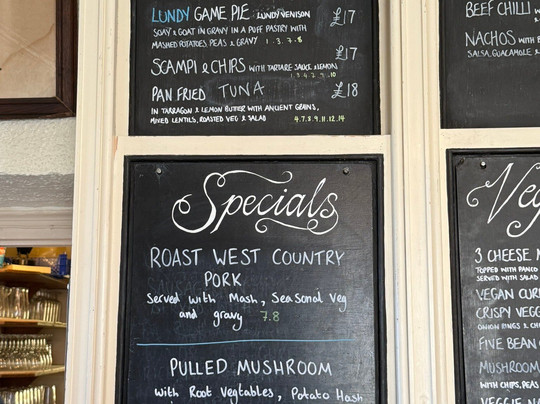 LUNDY GAME PIE LUNDY VENISON £17
SOAY & GOAT IN GRAVY IN A PUFF PASTRY WITH
MASHED POTATOES, PEAS & GRAVY 1.3.7.8
SCAMPI & CHIPS WITH TARTARE SAUCE & LEMON £17
1.3.4.7.9.10
PAN FRIED TUNA £18
IN TARRAGON & LEMON BUTTER WITH ANCIENT GRAINS,
MIXED LENTILS, ROASTED VEG & SALAD 4.7.8.9.11.12.14
Specials
ROAST WEST COUNTRY
PORK
Served with Mash, Seasonal Veg
and gravy 7.8
PULLED MUSHROOM
with Root Vegtables, Potato Hash
BEEF CHILLI
NACHOS WITH
SALSA, GUACAMOLE &
3 CHEESE
TOPPED WITH PANCO
SERVED WITH SALAD
VEGAN
CRISPY VEGG
ONION RINGS & CH
FIVE BEAN
MUSHROOM
WITH CHIPS, PEAS
VEGGIE